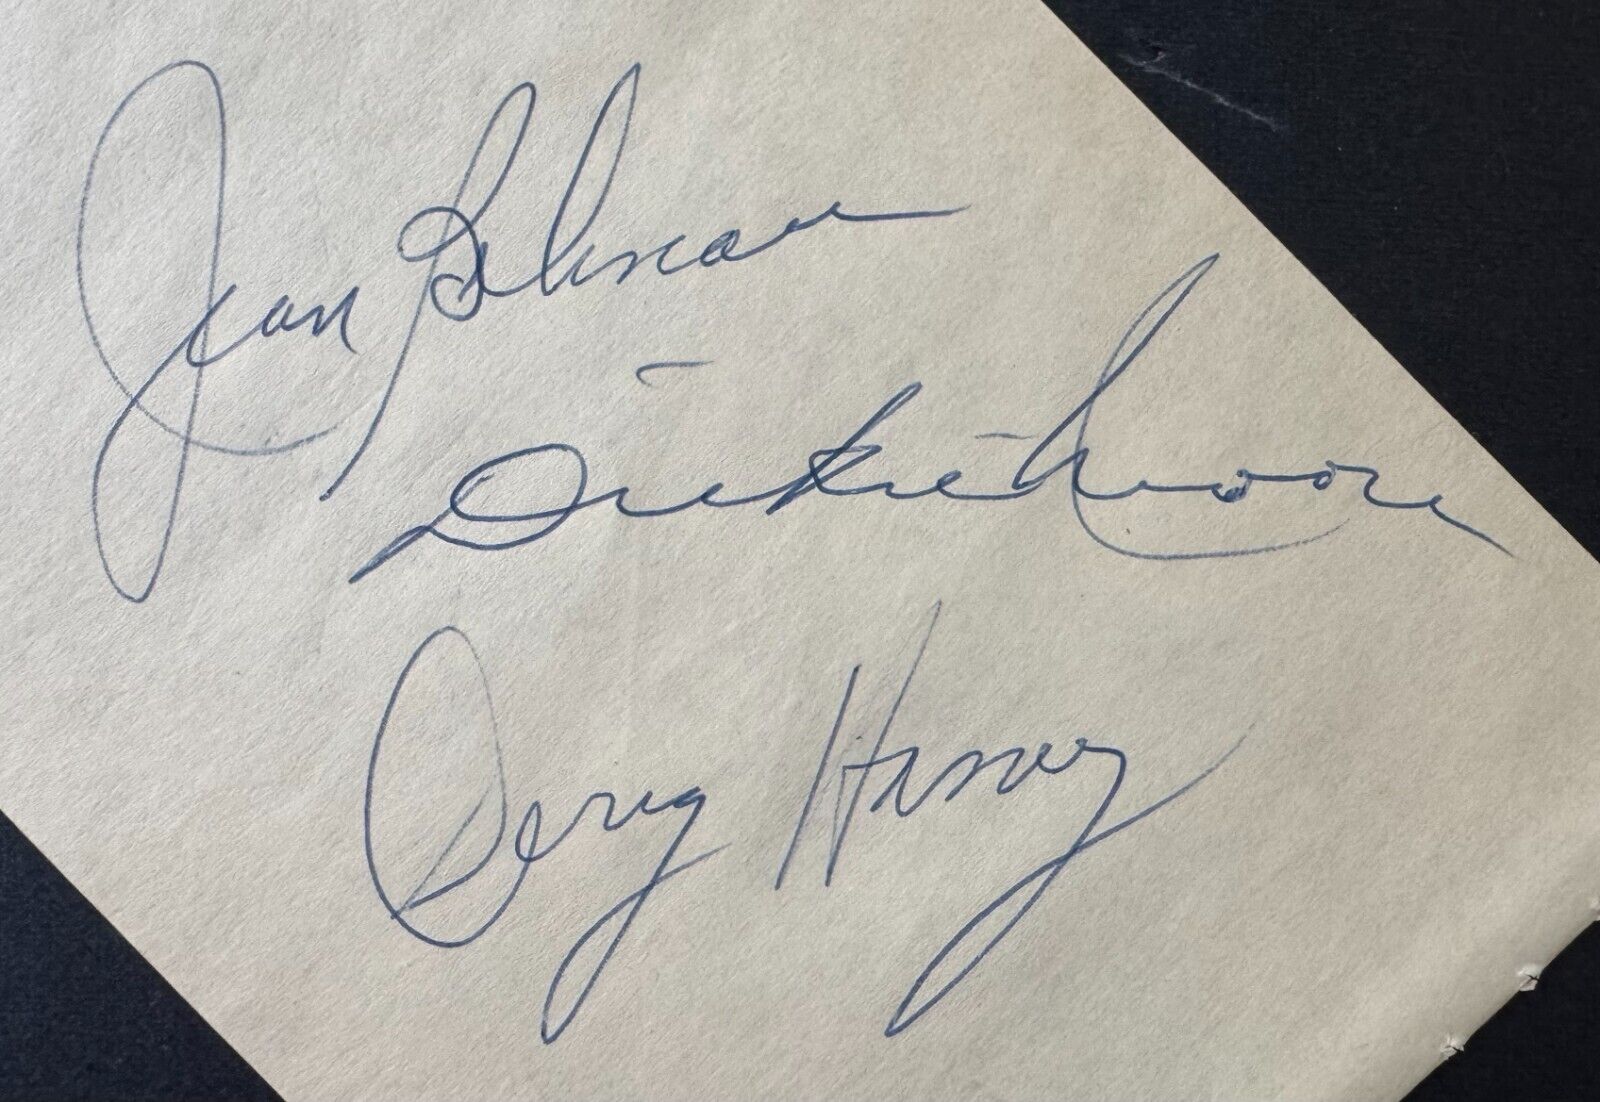 Jean Béliveau
Dickie Moore
Doug Harvey